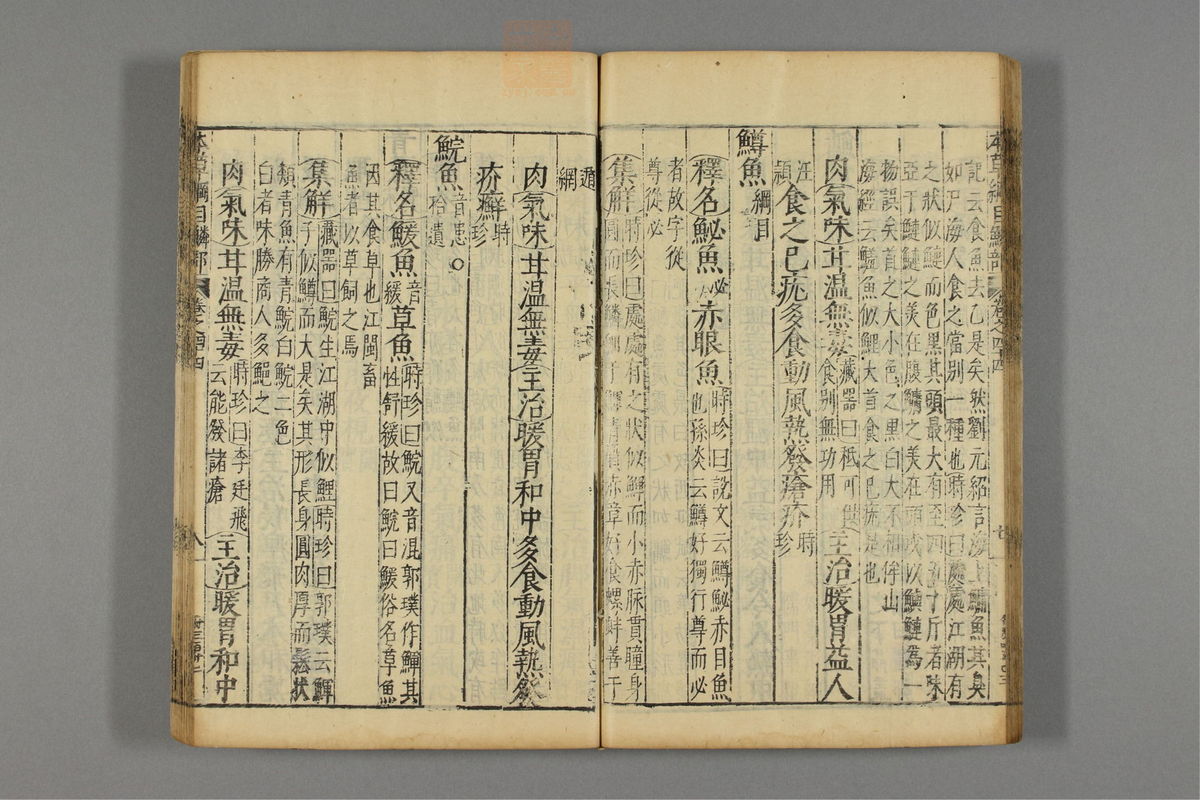 本草綱目鱗部 卷之四十四
記云食魚去乙是矣然劉元紹言海上鱅魚其臭
如尸海人食之當別一種也時珍曰處處江湖有
之狀似鰱而色黑其頭最大有至四五十斤者味
亞于鰱鰱之美在腹鱅之美在頭或以鱅鰱為一
物誤矣首之大小色之黑白大不相侔山
海經云鱅魚似鯉大首食之已疣是也
肉氣味甘溫無毒藏器曰秖可供食別無功用主治暖胃益人
汪穎食之已疣多食動風熱發瘡疥時珍
鱒魚綱目
釋名鮅魚必赤眼魚時珍曰說文云鱒鮅赤目魚
也孫炎云鱒好獨行尊而必
者故字從
尊從必
集解時珍曰處處有之狀似鯶而小赤脉貫瞳身
圓而長鱗細于鯶青質赤章好食螺蚌善于
遁
網
肉氣味甘溫無毒主治暖胃和中多食動風熱發
疥癬時珍
鯇魚音患拾遺
釋名鰀魚音緩草魚時珍曰鯇又音混郭璞作鯶其
性舒緩故曰鯇曰鰀俗名草魚
因其食草也江閩畜
魚者以草飼之焉
集解藏器曰鯇生江湖中似鯉時珍曰郭璞云鯶
子似鱒而大是矣其形長身圓肉厚而鬆狀
類青魚有青鯇白鯇二色
白者味勝商人多鮑之
肉氣味甘溫無毒時珍曰李廷飛云能發諸瘡主治暖胃和中
本草綱目鱗部 卷之四十四